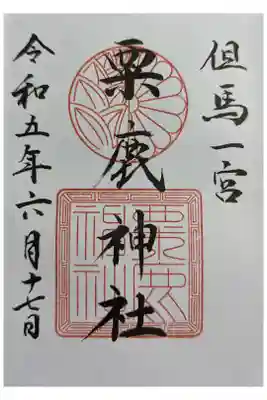 但馬一宮
粟鹿神社
令和五年六月十七日
粟鹿
神社